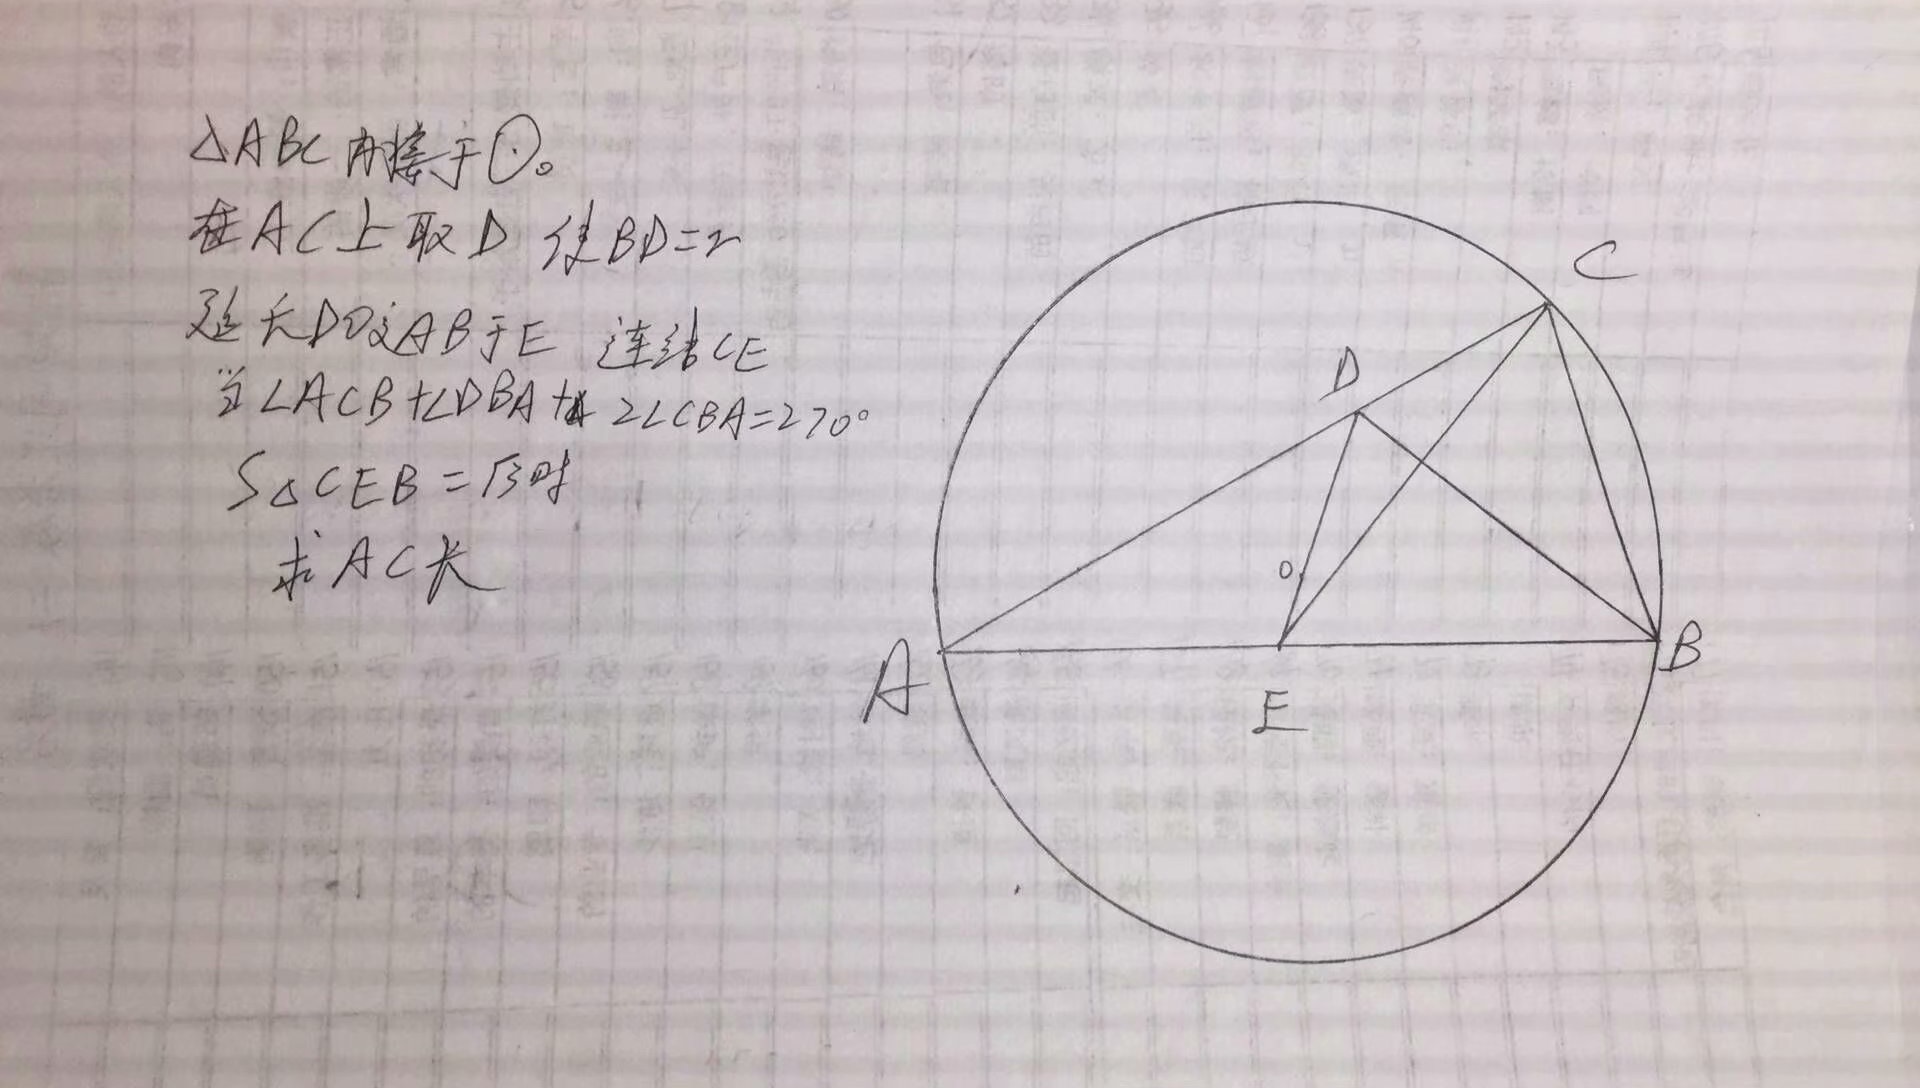 △ABC内接于⊙。
在AC上取D,使BD=2
延长DO交AB于E 连结CE
当∠ACB+∠DBA+2∠CBA=270°
S△CEB=√3时
求AC长
C
D
O
A
B
E